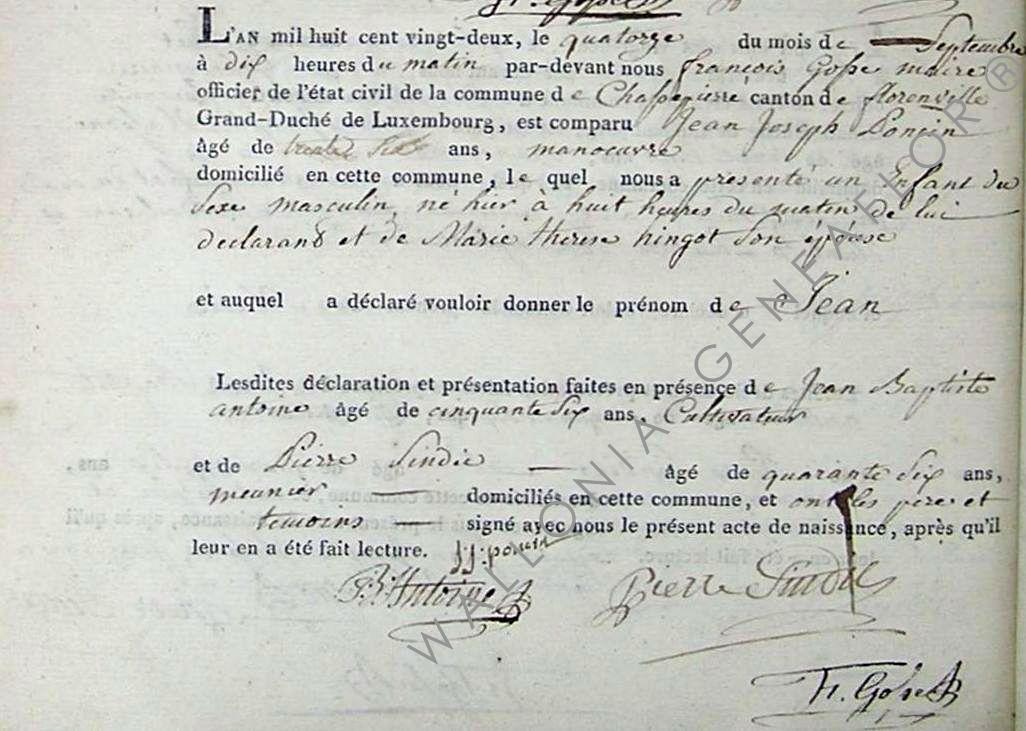 fr. Gosse
L'AN mil huit cent vingt-deux, le quatorze du mois de Septembre
à dix heures du matin par-devant nous françois Gosse maire
officier de l'état civil de la commune de Chassepierre canton de florenville
Grand-Duché de Luxembourg, est comparu Jean Joseph Poncin
âgé de trente six ans, manoeuvre
domicilié en cette commune, le quel nous a presenté un Enfant du
Sexe masculin, né hier à huit heures du matin de lui
declarant et de Marie therese hingot Son épouse
et auquel a déclaré vouloir donner le prénom de Jean
Lesdites déclaration et présentation faites en présence de Jean Baptiste
antoine âgé de cinquante Six ans, Cultivateur
et de Pierre Sindic — âgé de quarante Six ans,
meunier — domiciliés en cette commune, et ont les pere et
temoins — signé avec nous le présent acte de naissance, après qu'il
leur en a été fait lecture. J:J: poncin
B. Antoine Pierre Sindic
fr. Gosse
WALLONIA GENEAFLOR®